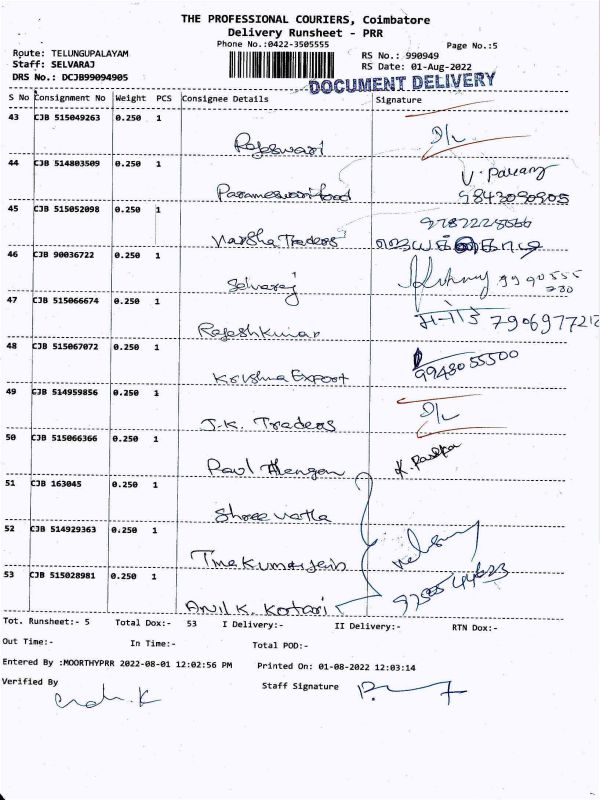 THE PROFESSIONAL COURIERS, Coimbatore
Delivery Runsheet - PRR
Phone No.:0422-3505555
Page No.:5
Route: TELUNGUPALAYAM
RS No.: 990949
Staff: SELVARAJ
RS Date: 01-Aug-2022
DRS No.: DCJB99094905
DOCUMENT DELIVERY
S No Consignment No Weight PCS Consignee Details Signature
43 CJB 515049263 0.250 1
Rajeswari D/L
44 CJB 514803509 0.250 1
Parameswari food 9843090905
45 CJB 515052098 0.250 1
Varsha Traders
46 CJB 90036722 0.250 1
Selvaraj
47 CJB 515066674 0.250 1
Rajeshkumar
48 CJB 515067072 0.250 1
Krishna Export 9943055500
49 CJB 514959856 0.250 1
J.K. Traders D/L
50 CJB 515066366 0.250 1
Paul
51 CJB 163045 0.250 1
Shree
52 CJB 514929363 0.250 1
53 CJB 515028981 0.250 1
Anil K. Kotari
Tot. Runsheet:- 5 Total Dox:- 53 I Delivery:- II Delivery:- RTN Dox:-
Out Time:- In Time:- Total POD:-
Entered By :MOORTHYPRR 2022-08-01 12:02:56 PM Printed On: 01-08-2022 12:03:14
Verified By Staff Signature